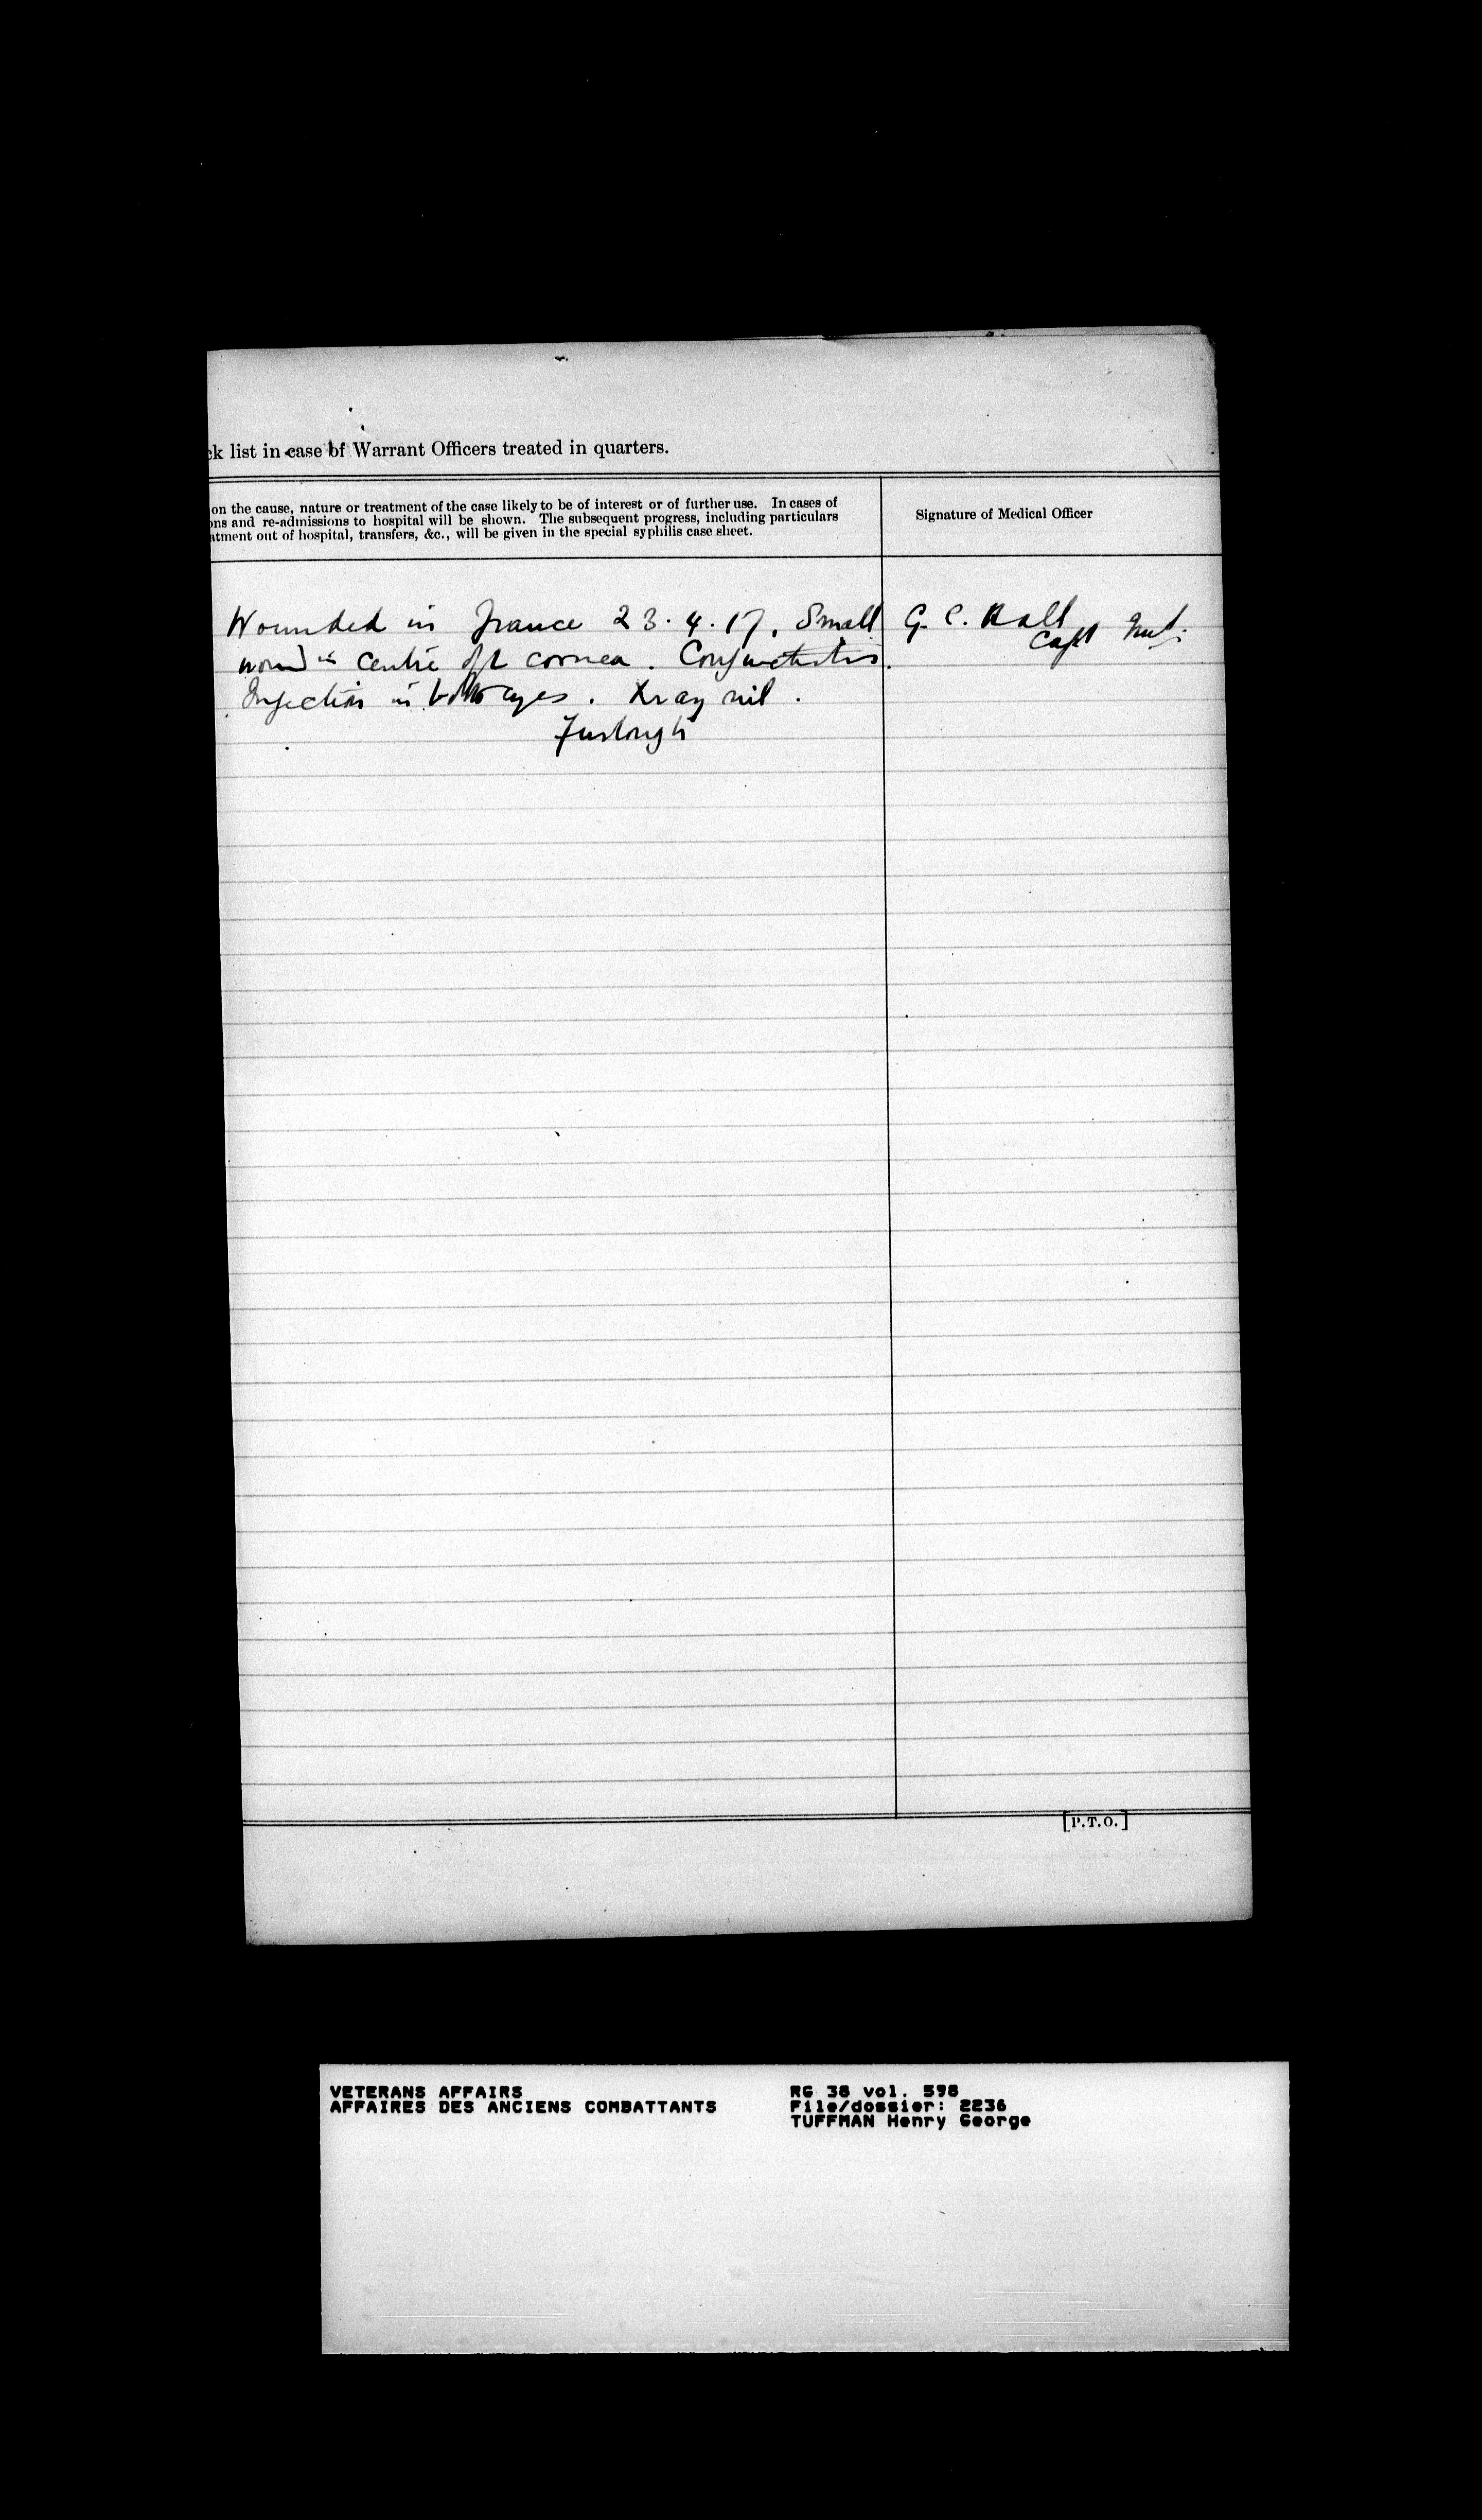 ck list in case of Warrant Officers treated in quarters.
on the cause, nature or treatment of the case likely to be of interest or of further use. In cases of
ons and re-admissions to hospital will be shown. The subsequent progress, including particulars
atment out of hospital, transfers, &c., will be given in the special syphilis case sheet.
Signature of Medical Officer
Wounded in France 23.4.17. Small
wound in centre of L cornea. Conjunctivitis.
Injection in both eyes. Xray nil.
Furlough
G. C. Hall
Capt
[P.T.O.]
VETERANS AFFAIRS
AFFAIRES DES ANCIENS COMBATTANTS
RG 38 vol. 598
File/dossier: 2236
TUFFMAN Henry George